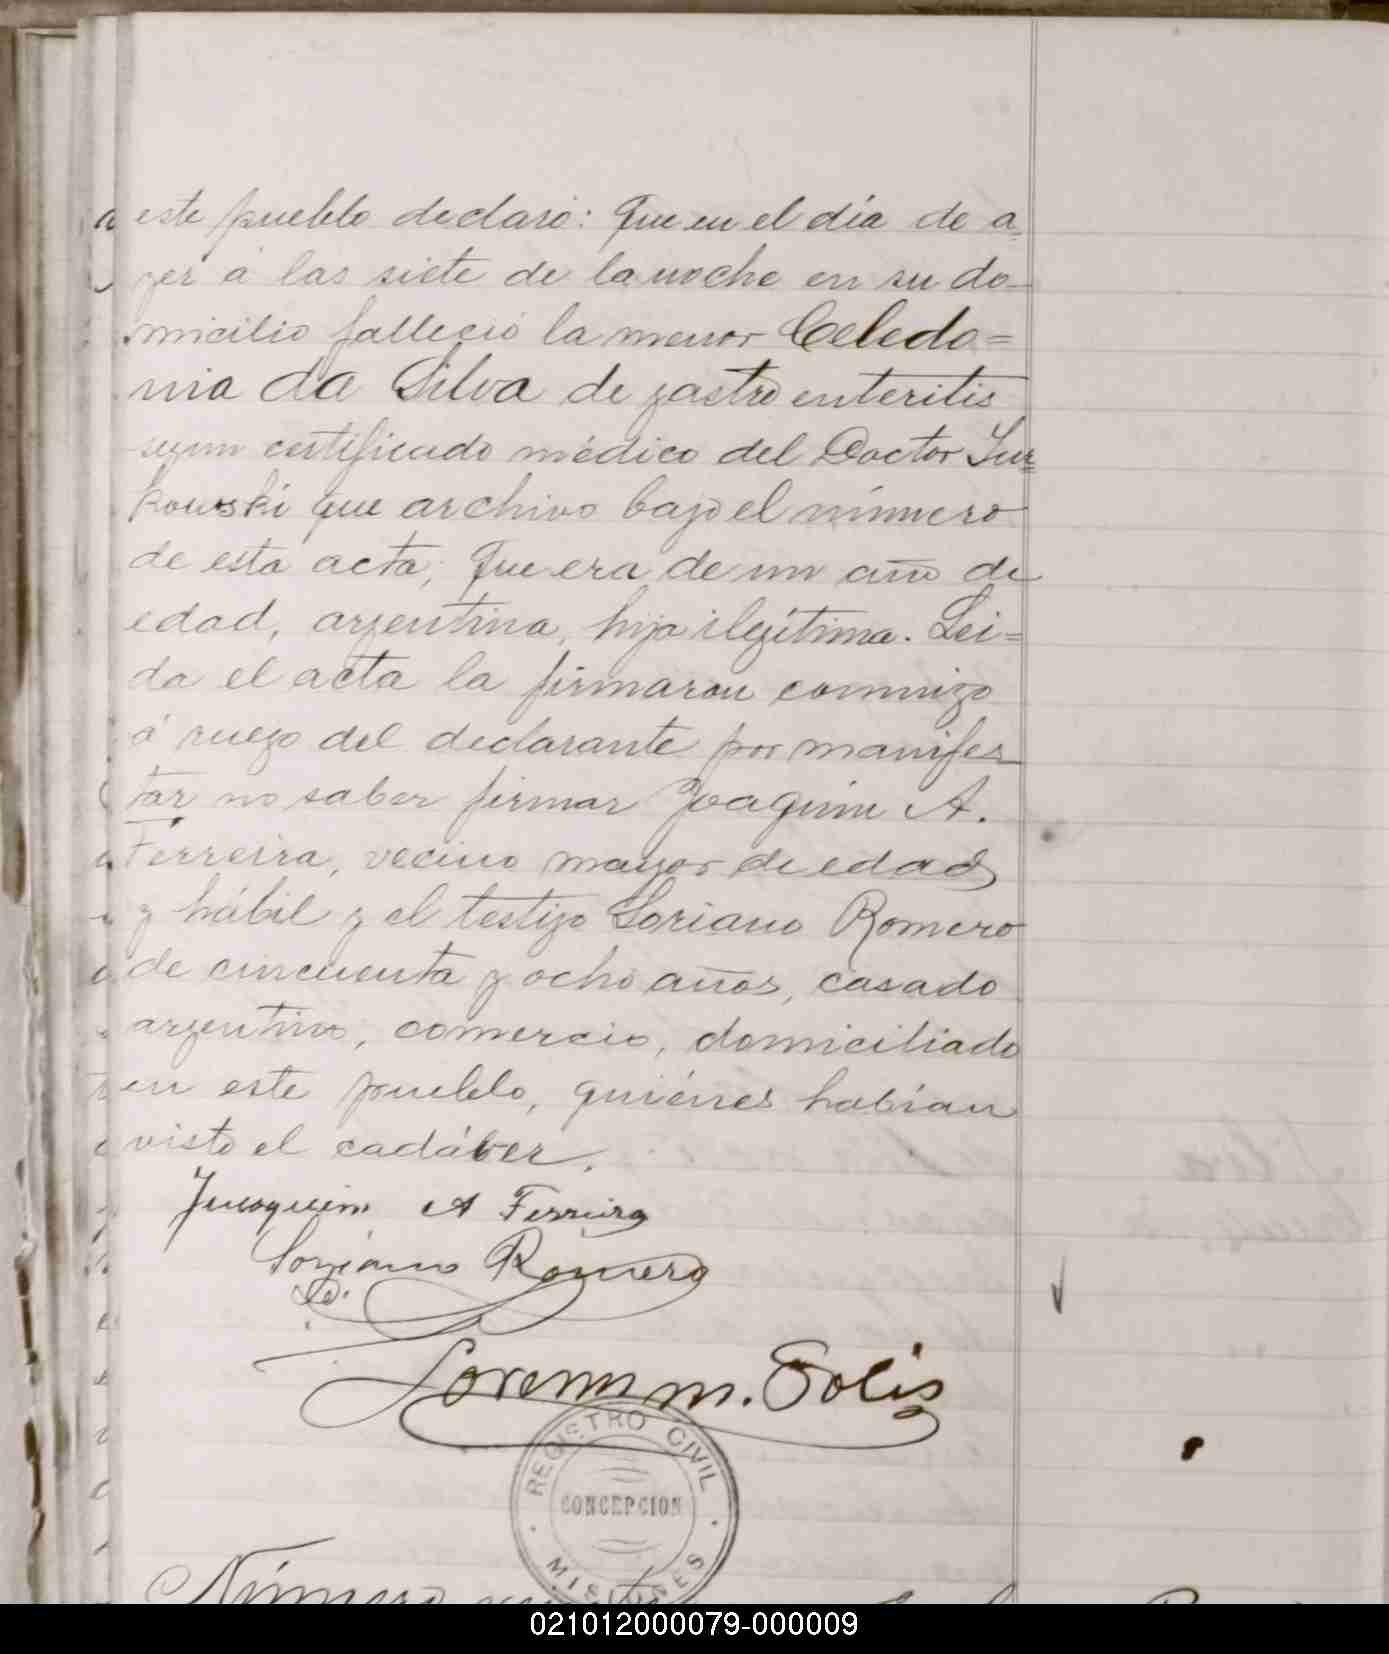 este pueblo declaró: Que en el día de a-
yer á las siete de la noche en su do-
micilio falleció la menor Celedo=
nia da Silva de gastro enteritis
segun certificado médico del Doctor Jur=
kowski que archivo bajo el número
de esta acta; Que era de un año de
edad, argentina, hija ilegítima. Lei=
da el acta la firmaron conmigo
á ruego del declarante por manifes
tar no saber firmar Joaquim A.
Ferreira, vecino mayor de edad
y hábil y el testigo Soriano Romero
de cincuenta y ocho años, casado
argentino, comercio, domiciliado
en este pueblo, quiénes habían
visto el cadáver.
A Ferreira
Soriano Romero
M. Solis
REGISTRO CIVIL
CONCEPCION
MISIONES
Número
021012000079-000009